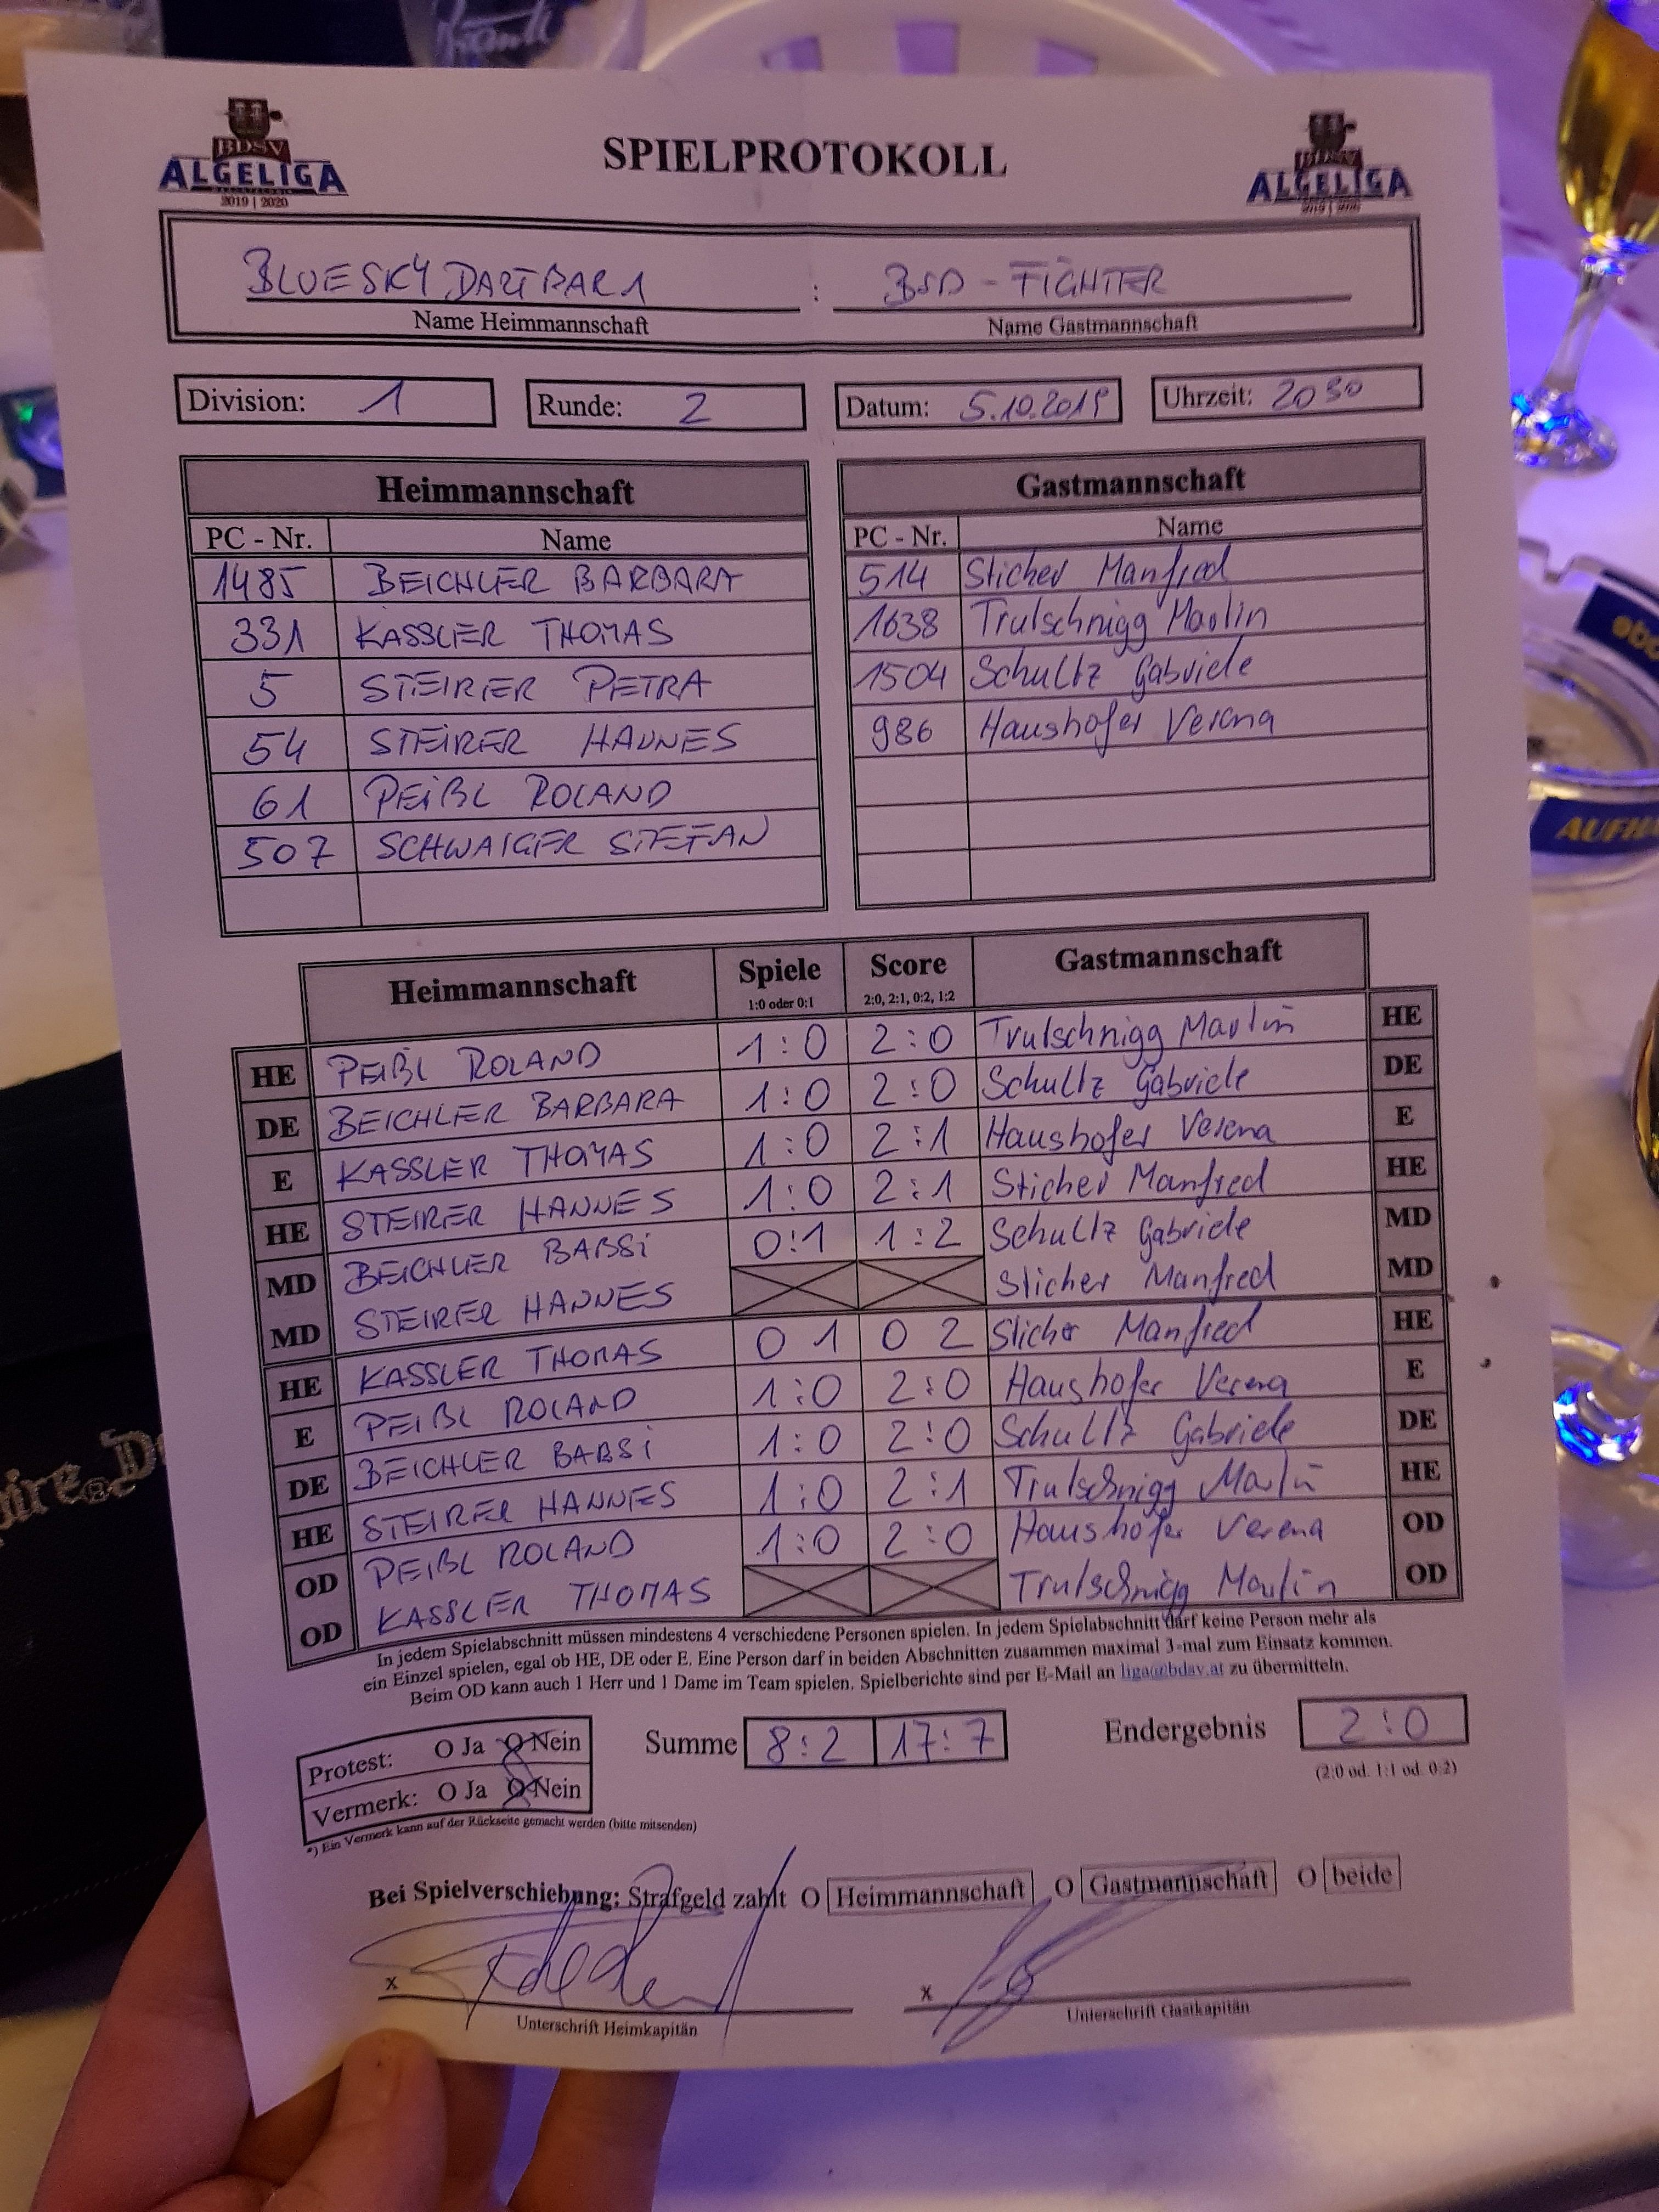 BDSV
ALGELIGA
2019 | 2020
SPIELPROTOKOLL
BDSV
ALGELIGA
BLUESKY DARTBAR 1 : BSD - FIGHTER
Name Heimmannschaft Name Gastmannschaft
Division: 1 Runde: 2 Datum: 5.10.2019 Uhrzeit: 20 30
Heimmannschaft Gastmannschaft
PC - Nr. Name PC - Nr. Name
1485 BEICHLER BARBARA 514 Sticher Manfred
331 KASSLER THOMAS 1638 Trutschnigg Martin
5 STEIRER PETRA 1504 Schultz Gabriele
54 STEIRER HANNES 986 Haushofer Verena
61 PEIßL ROLAND
507 SCHWAIGER STEFAN
Heimmannschaft Spiele Score Gastmannschaft
1:0 oder 0:1 2:0, 2:1, 0:2, 1:2
HE PEIßL ROLAND 1:0 2:0 Trutschnigg Martin HE
DE BEICHLER BARBARA 1:0 2:0 Schultz Gabriele DE
E KASSLER THOMAS 1:0 2:1 Haushofer Verena E
HE STEIRER HANNES 1:0 2:1 Sticher Manfred HE
MD BEICHLER BABSI 0:1 1:2 Schultz Gabriele MD
MD STEIRER HANNES Sticher Manfred MD
HE KASSLER THOMAS 0 1 0 2 Sticher Manfred HE
E PEIßL ROLAND 1:0 2:0 Haushofer Verena E
DE BEICHLER BABSI 1:0 2:0 Schultz Gabriele DE
HE STEIRER HANNES 1:0 2:1 Trutschnigg Martin HE
OD PEIßL ROLAND 1:0 2:0 Haushofer Verena OD
OD KASSLER THOMAS Trutschnigg Martin OD
In jedem Spielabschnitt müssen mindestens 4 verschiedene Personen spielen. In jedem Spielabschnitt darf keine Person mehr als
ein Einzel spielen, egal ob HE, DE oder E. Eine Person darf in beiden Abschnitten zusammen maximal 3-mal zum Einsatz kommen.
Beim OD kann auch 1 Herr und 1 Dame im Team spielen. Spielberichte sind per E-Mail an liga@bdsv.at zu übermitteln.
Protest: O Ja O Nein Summe 8:2 17:7 Endergebnis 2:0
Vermerk: O Ja O Nein (2:0 od. 1:1 od. 0:2)
*) Ein Vermerk kann auf der Rückseite gemacht werden (bitte mitsenden)
Bei Spielverschiebung: Strafgeld zahlt O Heimmannschaft O Gastmannschaft O beide
x x
Unterschrift Heimkapitän Unterschrift Gastkapitän